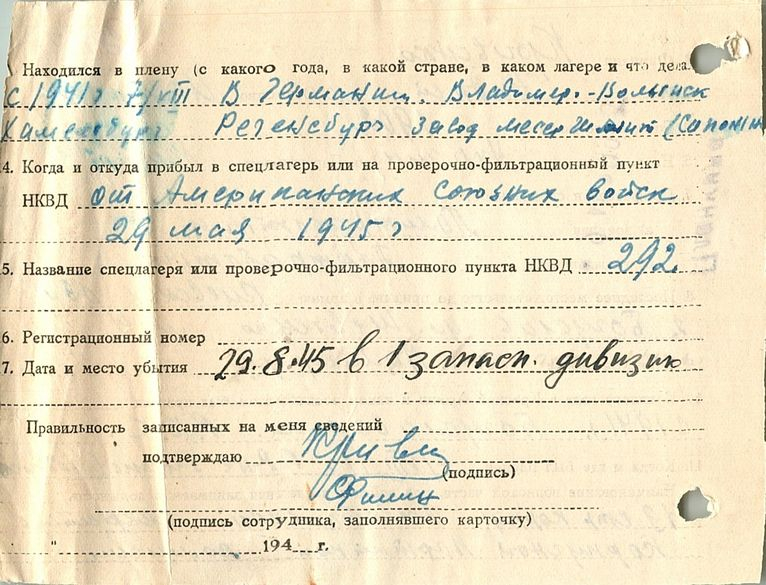 Находился в плену (с какого года, в какой стране, в каком лагере и что дела
с 1941 г 7/VIII В Германии. Владимер.-Волынск
Хаммельбург Регенсбург Завод мессершмит
4. Когда и откуда прибыл в спецлагерь или на проверочно-фильтрационный пункт
НКВД от Американских союзных войск
29 мая 1945 г
5. Название спецлагеря или проверочно-фильтрационного пункта НКВД 292
6. Регистрационный номер
7. Дата и место убытия 29.8.45 в 1 запасн. дивизию
Правильность записанных на меня сведений
подтверждаю
(подпись)
(подпись сотрудника, заполнявшего карточку)
" 194 г.